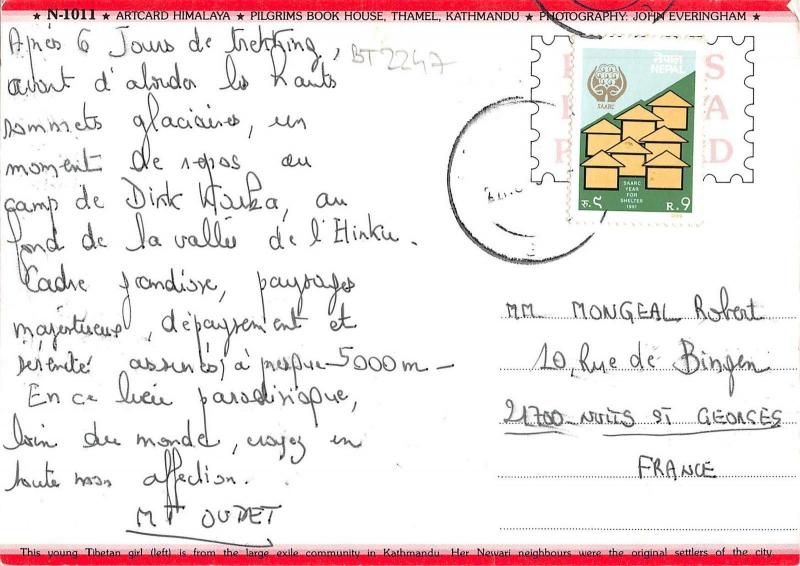 N-1011 ★ ARTCARD HIMALAYA ★ PILGRIMS BOOK HOUSE, THAMEL, KATHMANDU ★ PHOTOGRAPHY: JOHN EVERINGHAM ★
Après 6 Jours de trekking,
BT2247
avant d'aborder les hauts
sommets glaciaires, un
moment de repos au
camp de Dirk Kurka, au
fond de la vallée de l'Hinku.
Cadre grandiose, paysages
majestueux, dépaysement et
sérénité assurés, à presque 5000m -
En ce lieu paradisiaque,
loin du monde, croyez en
toute mon affection.
MT OUDET
नेपाल
NEPAL
SAARC
SAARC
YEAR
FOR
SHELTER
1991
रु. ९
R. 9
MM. MONGEAL Robert
10, Rue de Bingen
21700 NUITS ST GEORGES
FRANCE
This young Tibetan girl (left) is from the large exile community in Kathmandu. Her Newari neighbours were the original settlers of the city.